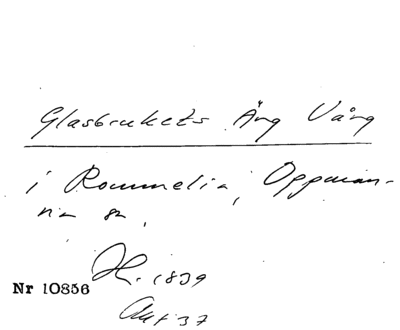 Glasbrukets Äng Vång
i Rommelia, Oppman-
na sn,
H. 1839
Nr 10856
Akt 37